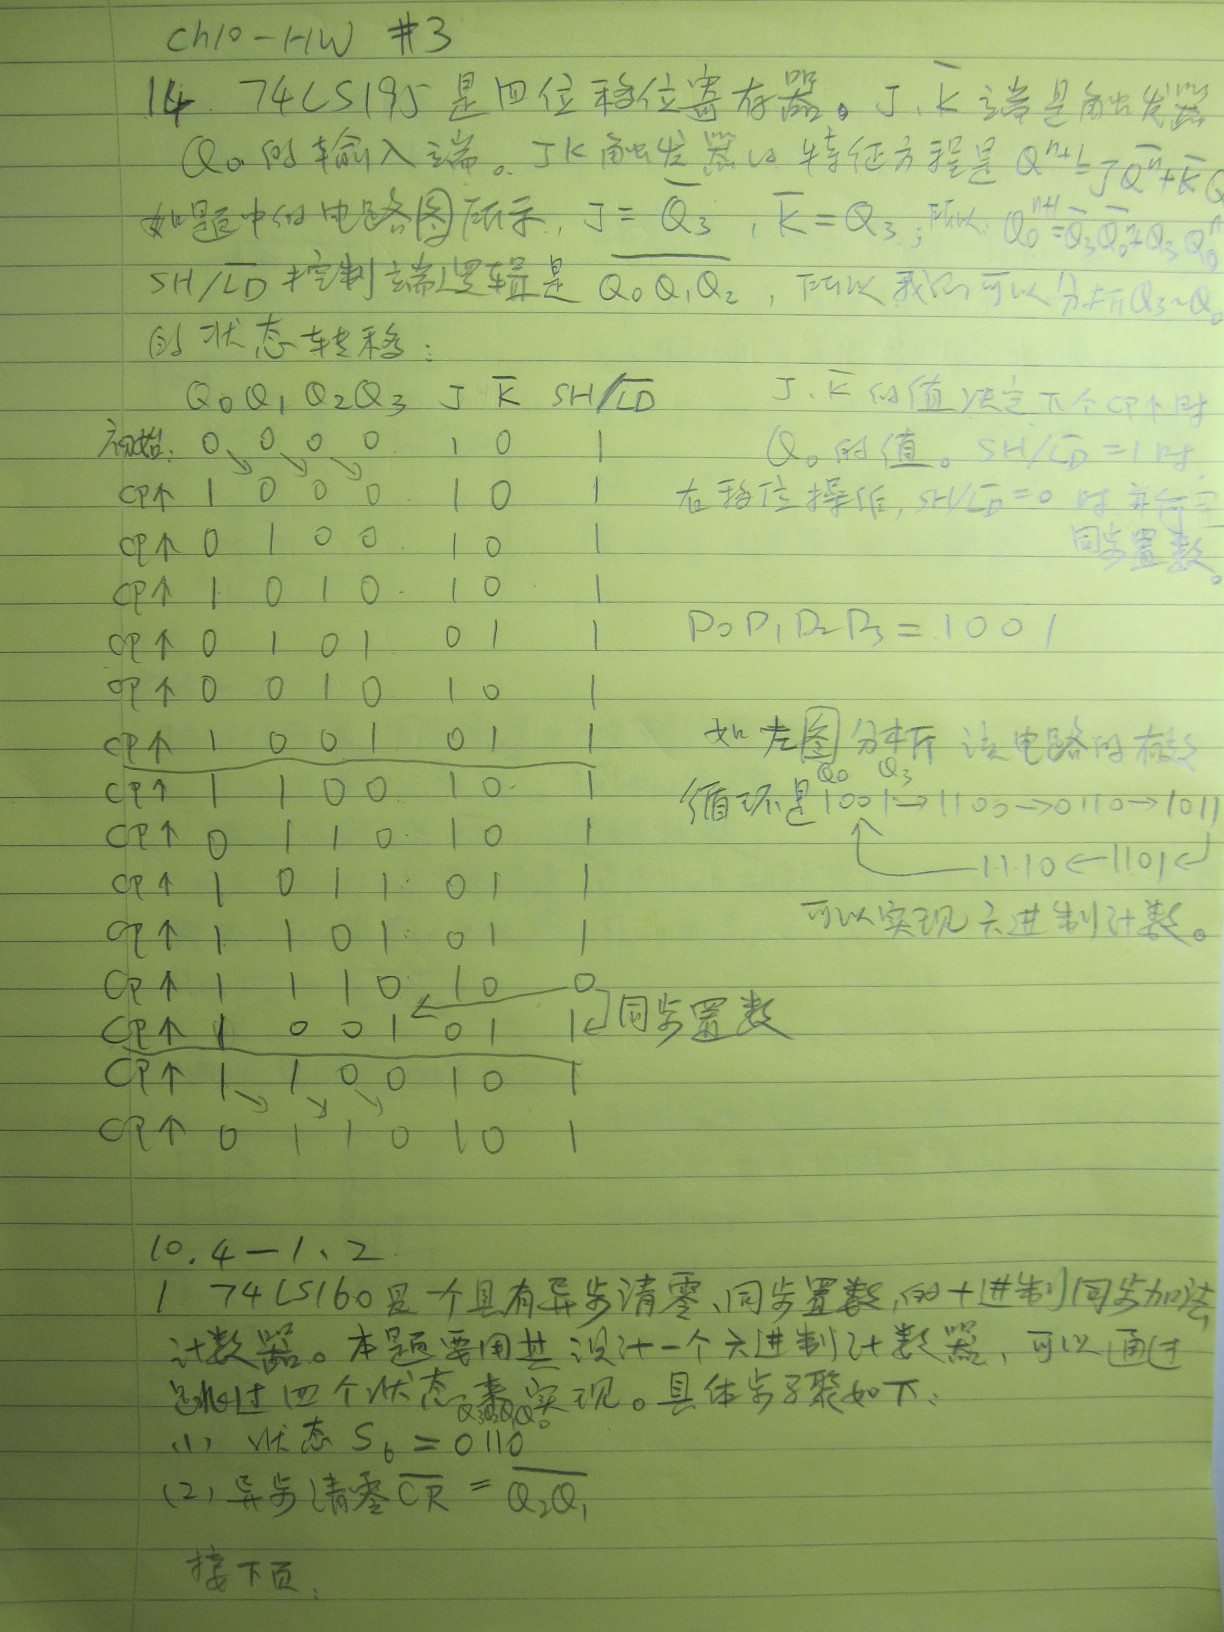 ch10-HW #3
14. 74LS195是四位移位寄存器。J、K̅端是触发器
Q₀的输入端。JK触发器的特征方程是Qⁿ⁺¹=JQ̅ⁿ+K̅Q
如题中的电路图所示, J=Q̅₃, K̅=Q₃, 所以 Q₀ⁿ⁺¹=Q̅₃Q̅₀ⁿ+Q₃Q₀ⁿ
SH/L̅D̅控制端逻辑是 \overline{Q₀Q₁Q₂}, 所以我们可以分析Q₃~Q₀
的状态转移:
Q₀Q₁Q₂Q₃ J K̅ SH/L̅D̅
初始: 0 0 0 0 1 0 1
CP↑ 1 0 0 0 1 0 1
CP↑ 0 1 0 0 1 0 1
CP↑ 1 0 1 0 1 0 1
CP↑ 0 1 0 1 0 1 1
CP↑ 0 0 1 0 1 0 1
CP↑ 1 0 0 1 0 1 1
CP↑ 1 1 0 0 1 0 1
CP↑ 0 1 1 0 1 0 1
CP↑ 1 0 1 1 0 1 1
CP↑ 1 1 0 1 0 1 1
CP↑ 1 1 1 0 1 0 0
CP↑ 1 0 0 1 0 1 1 同步置数
CP↑ 1 1 0 0 1 0 1
CP↑ 0 1 1 0 1 0 1
J、K̅的值决定下个CP↑时
Q₀的值。SH/L̅D̅=1时
右移位操作, SH/L̅D̅=0时并行
同步置数。
D₀D₁D₂D₃=1001
如左图分析该电路的有效
Q₀ Q₃
循环是1001→1100→0110→1011
1110←1101←
可以实现六进制计数。
10.4-1、2
1 74LS160是一个具有异步清零、同步置数,的十进制同步加法
计数器。本题要用其设计一个六进制计数器, 可以通过
跳过四个状态来实现。具体步骤如下:
Q₃Q₂Q₁Q₀
(1) 状态S₆=0110
(2) 异步清零C̅R̅=\overline{Q₂Q₁}
接下页: